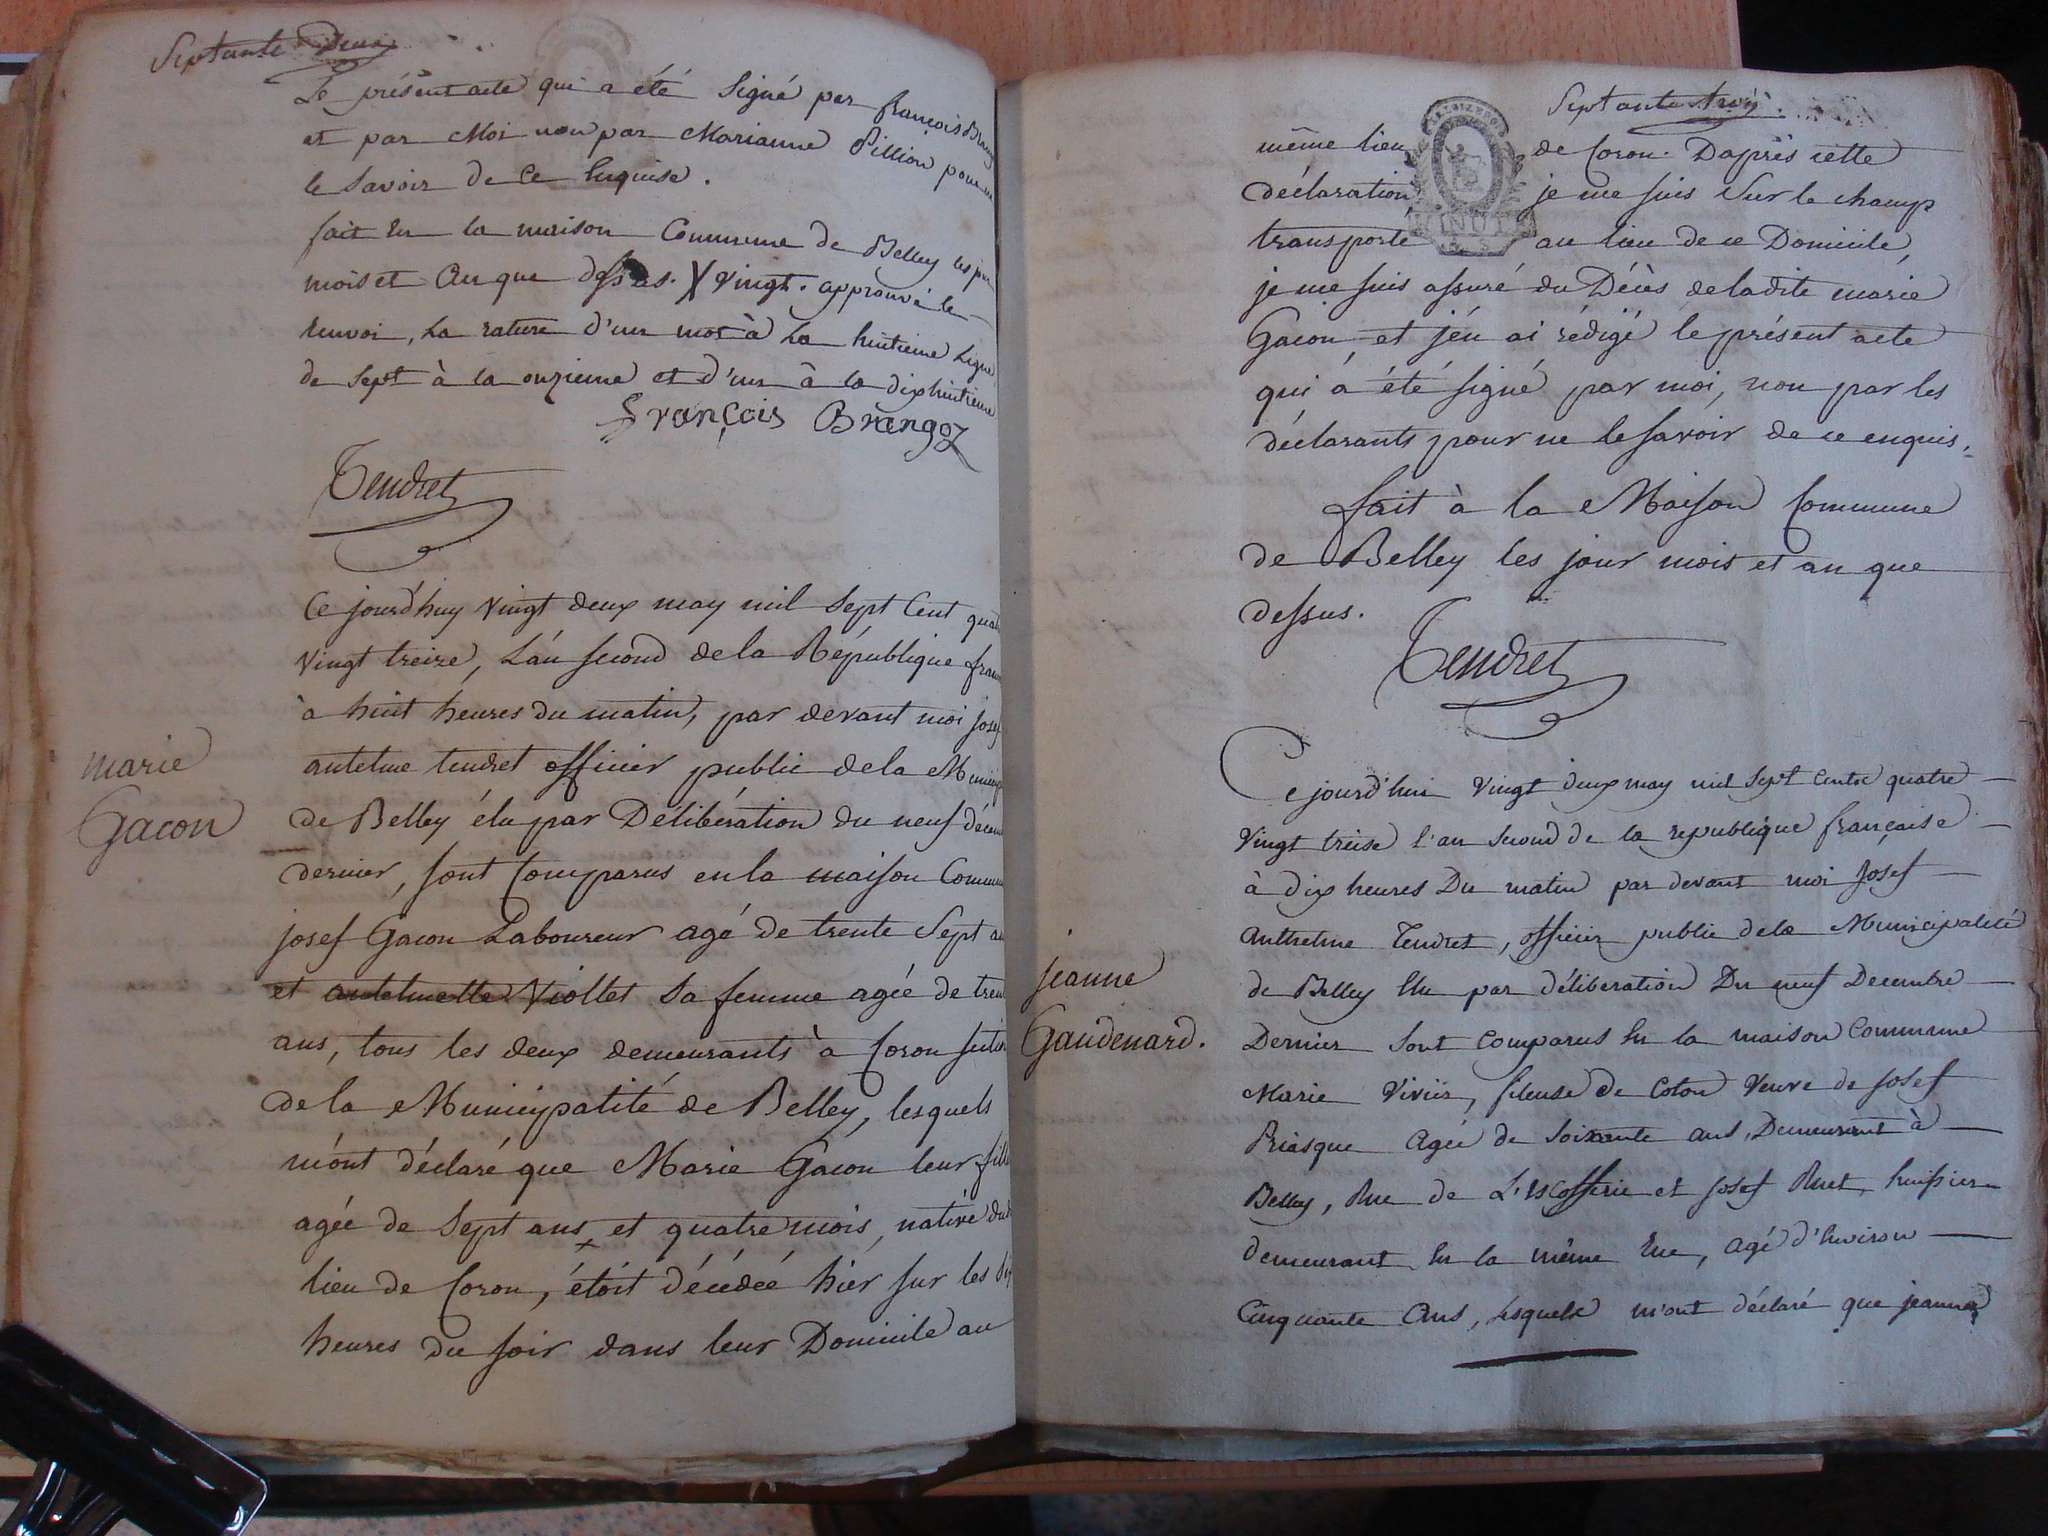 Septante Deux
Le présent acte qui a été Signé par françois Brang
et par Moi non par Marianne Pillion pour ne
le Savoir de Ce Enquise.
fait En la maison Commune de Belley les jour
mois et an que dessus. X vingt. approuvé le
Renvoi, La rature d'un mot à La huitieme Ligne
de sept à la onzieme et d'un à la dixhuitieme
François Brangoz
Tendret
Ce jourd'huy vingt deux may mil Sept Cent quat
vingt treize, L'an second de la République fran
à huit heures du matin, par devant moi Josef
antelme tendret officier public de la Municip
de Belley élu par Délibération du neuf décem
dernier, sont Comparus en la maison Commun
marie
Gacon
josef Gacon Laboureur agé de trente Sept an
et antelmette Viollet Sa femme agée de tren
ans, tous les deux demeurants à Coron section
de la Municipalité de Belley, lesquels
m'ont déclaré que Marie Gacon leur fille
agée de Sept ans et quatre mois, native dud
lieu de Coron, étoit décédée hier sur les dix
heures du soir dans leur Domicile au
Septante trois
même lieu de Coron. D'après cette
déclaration je me suis Sur le champ
transporté au lieu de ce Domicile,
je me suis assuré du Décès de ladite marie
Gacon, et j'en ai rédigé le présent acte
qui a été signé par moi, non par les
déclarants pour ne le savoir de ce enquis.
MINUTE
fait à la Maison Commune
de Belley les jour mois et an que
dessus.
Tendret
Ce jourd'hui vingt deux may mil Sept Cents quatre
Vingt treise l'an Second de la republique française
à dix heures Du matin par devant moi Josef
Anthelme Tendret, officier public de la Municipalité
de Belley Elu par délibération Du neuf Decembre
Dernier Sont Comparus En la maison Commune
jeanne
Gaudenard.
Marie Vivier, fileuse de Coton Veuve de Josef
Priasque Agée de Soixante ans, Demeurant à
Belley, Rue de L'Escofferie et Josef Ruet, huissier
demeurant En la même Rue, agé d'Environ
Cinquante Ans, Lesquels m'ont déclaré que jeanne